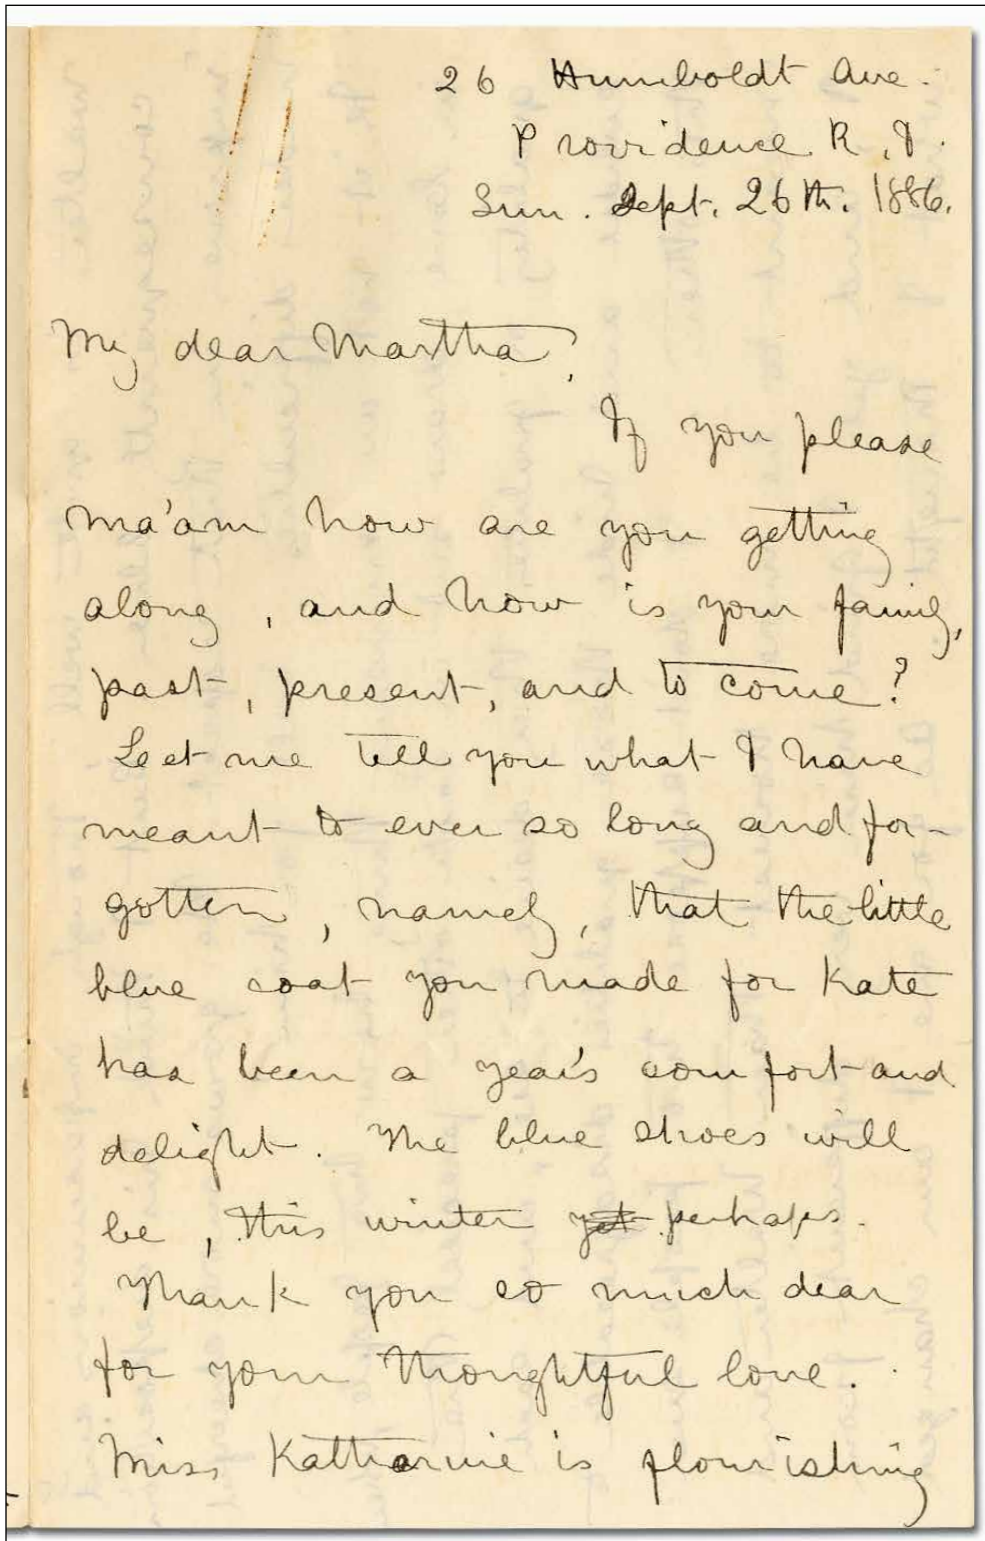 26 Humboldt Ave.
Providence R.I.
Sun. Sept. 26th. 1886.
My dear Martha,
If you please
ma'am how are you getting
along, and how is your family,
past, present, and to come?
Let me tell you what I have
meant to ever so long and for-
gotten, namely, that the little
blue coat you made for Kate
has been a year's comfort and
delight. The blue shoes will
be, this winter yet perhaps.
Thank you so much dear
for your thoughtful love.
Miss Katharine is flourishing